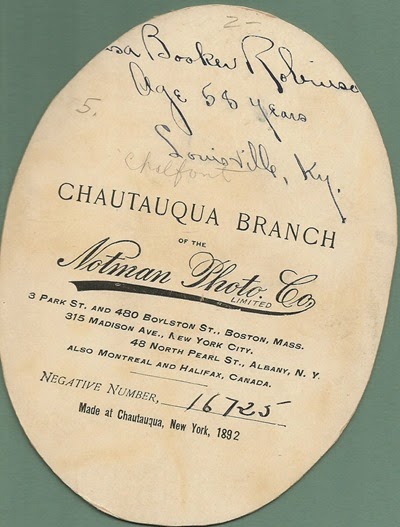 2-
sa Booker Robinso
Age 58 years
5.
Louisville, Ky.
Chalfont
CHAUTAUQUA BRANCH
OF THE
Notman Photo. Co
LIMITED
3 PARK ST. AND 480 BOYLSTON ST., BOSTON, MASS.
315 MADISON AVE., NEW YORK CITY.
48 NORTH PEARL ST., ALBANY, N. Y.
ALSO MONTREAL AND HALIFAX, CANADA.
NEGATIVE NUMBER, 16725
Made at Chautauqua, New York, 1892